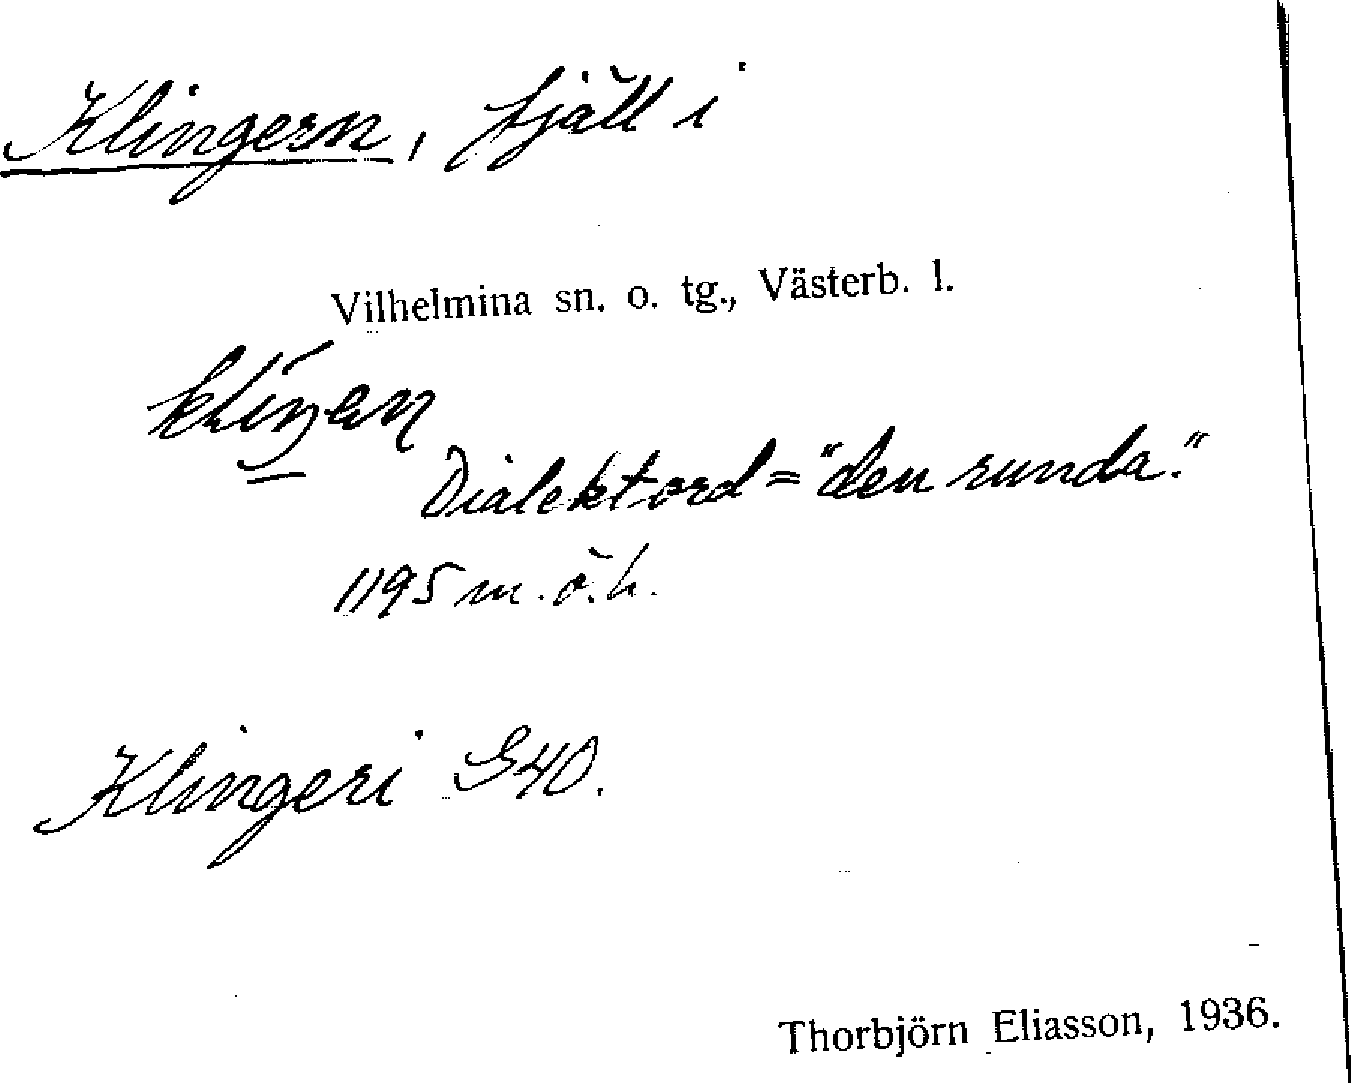 Klingern, fjäll i
Vilhelmina sn. o. tg., Västerb. l.
Dialektord = "den runda."
1195 m. ö. h.
Klingeri G40.
Thorbjörn Eliasson, 1936.